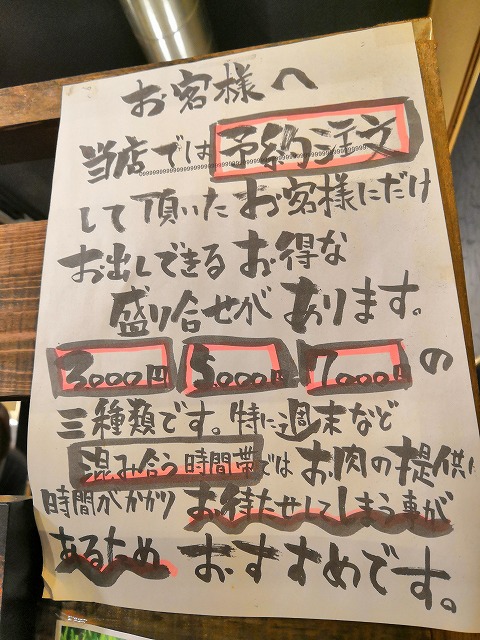 お客様へ
当店では予約注文
して頂いたお客様にだけ
お出しできるお得な
盛り合せが あります。
3000円 5000円 7000円の
三種類です。特に週末など
混み合う時間帯ではお肉の提供に
時間がかかりお待たせしてしまう事が
あるため おすすめです。